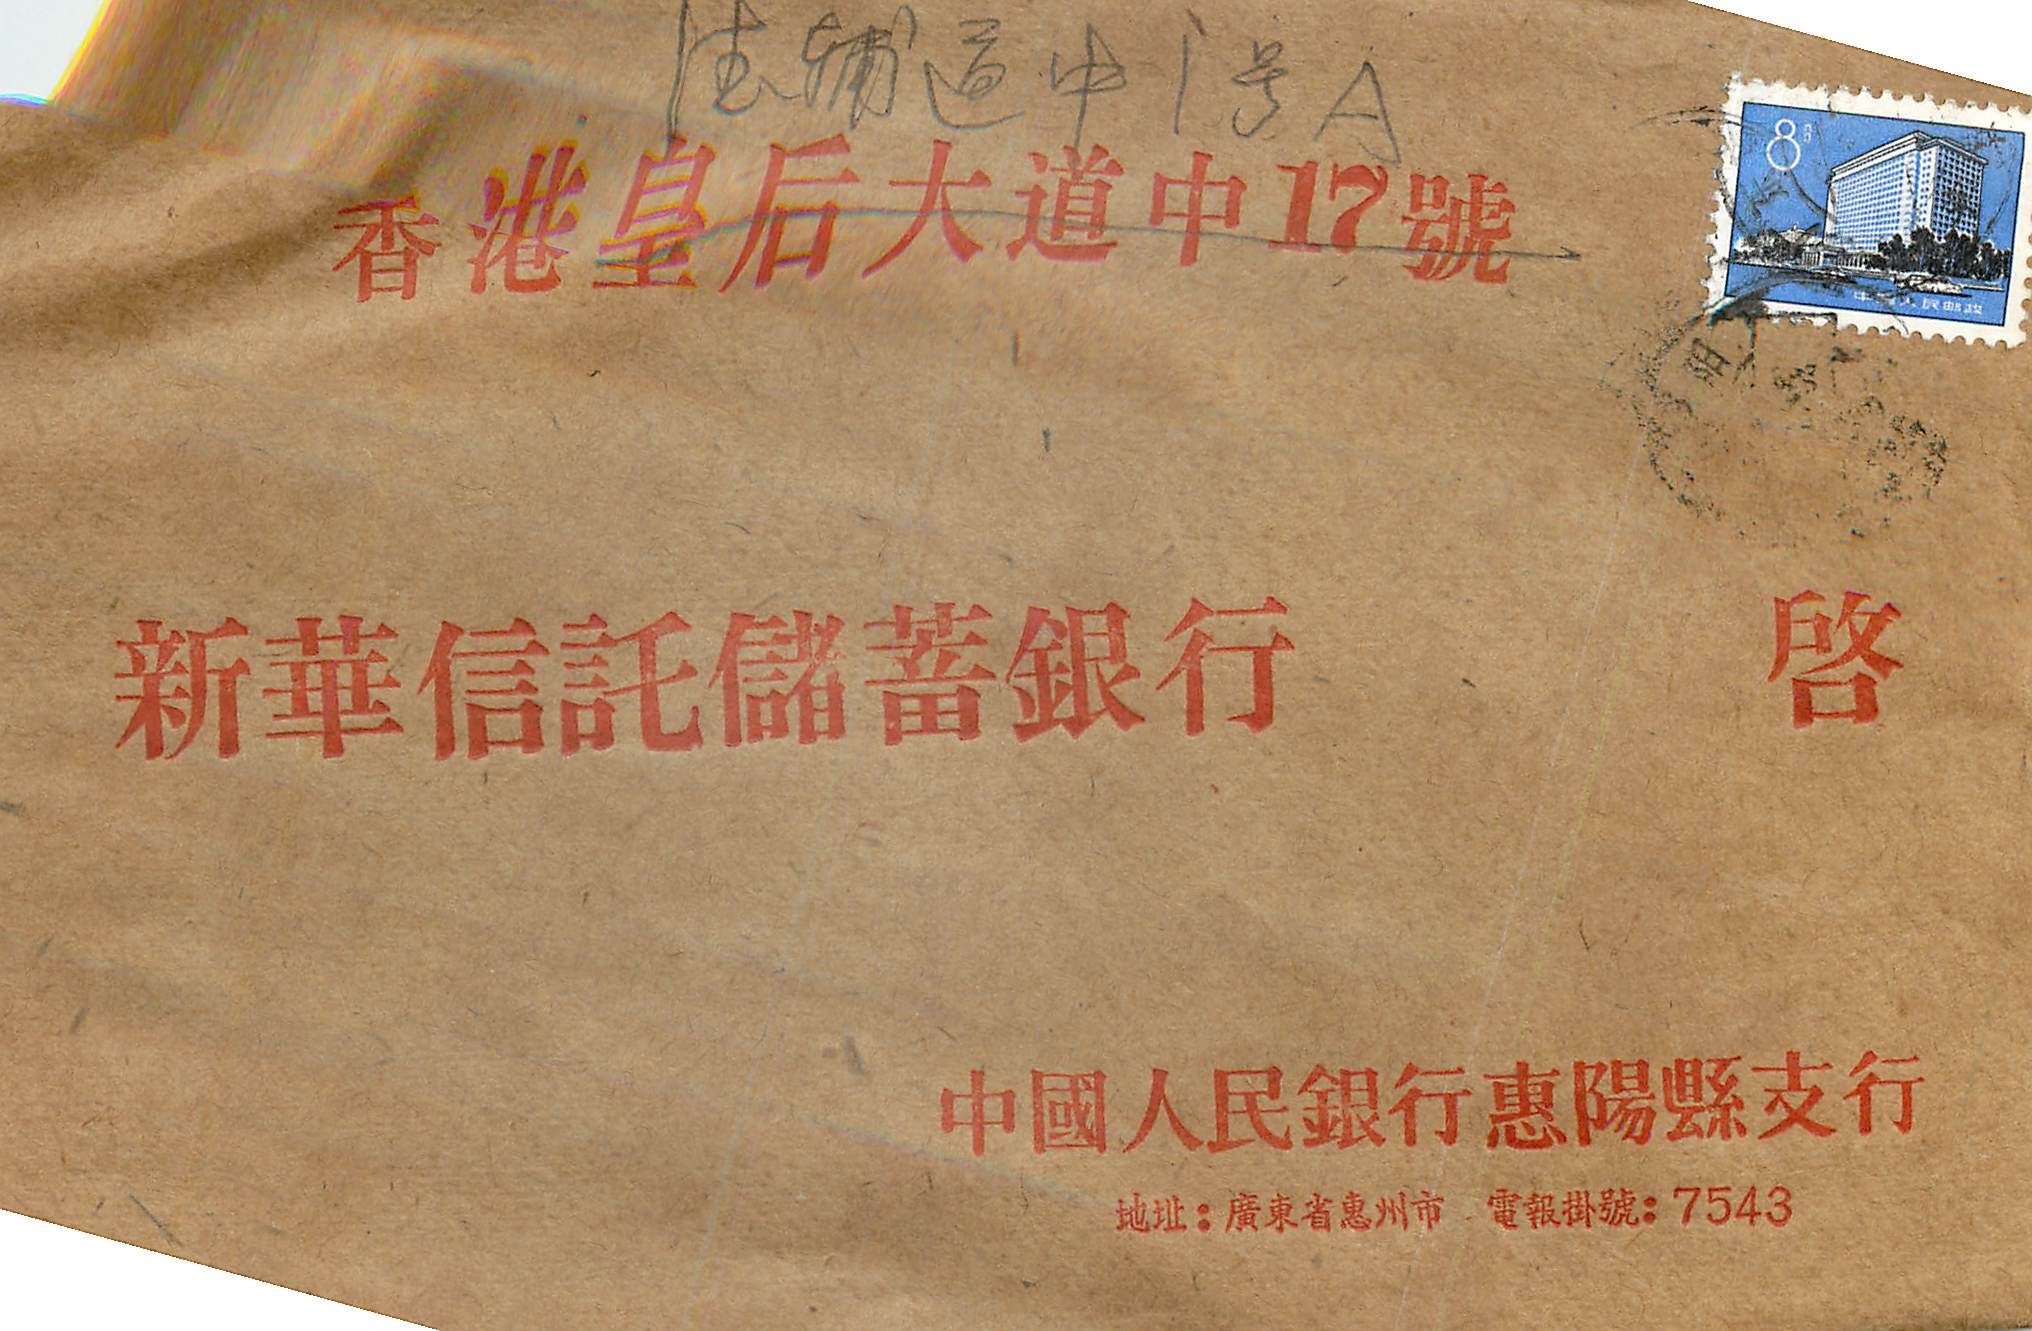 德辅道中1号A
香港皇后大道中17號
8分
中国人民邮政
新華信託儲蓄銀行 啓
中國人民銀行惠陽縣支行
地址：廣東省惠州市 電報掛號：7543